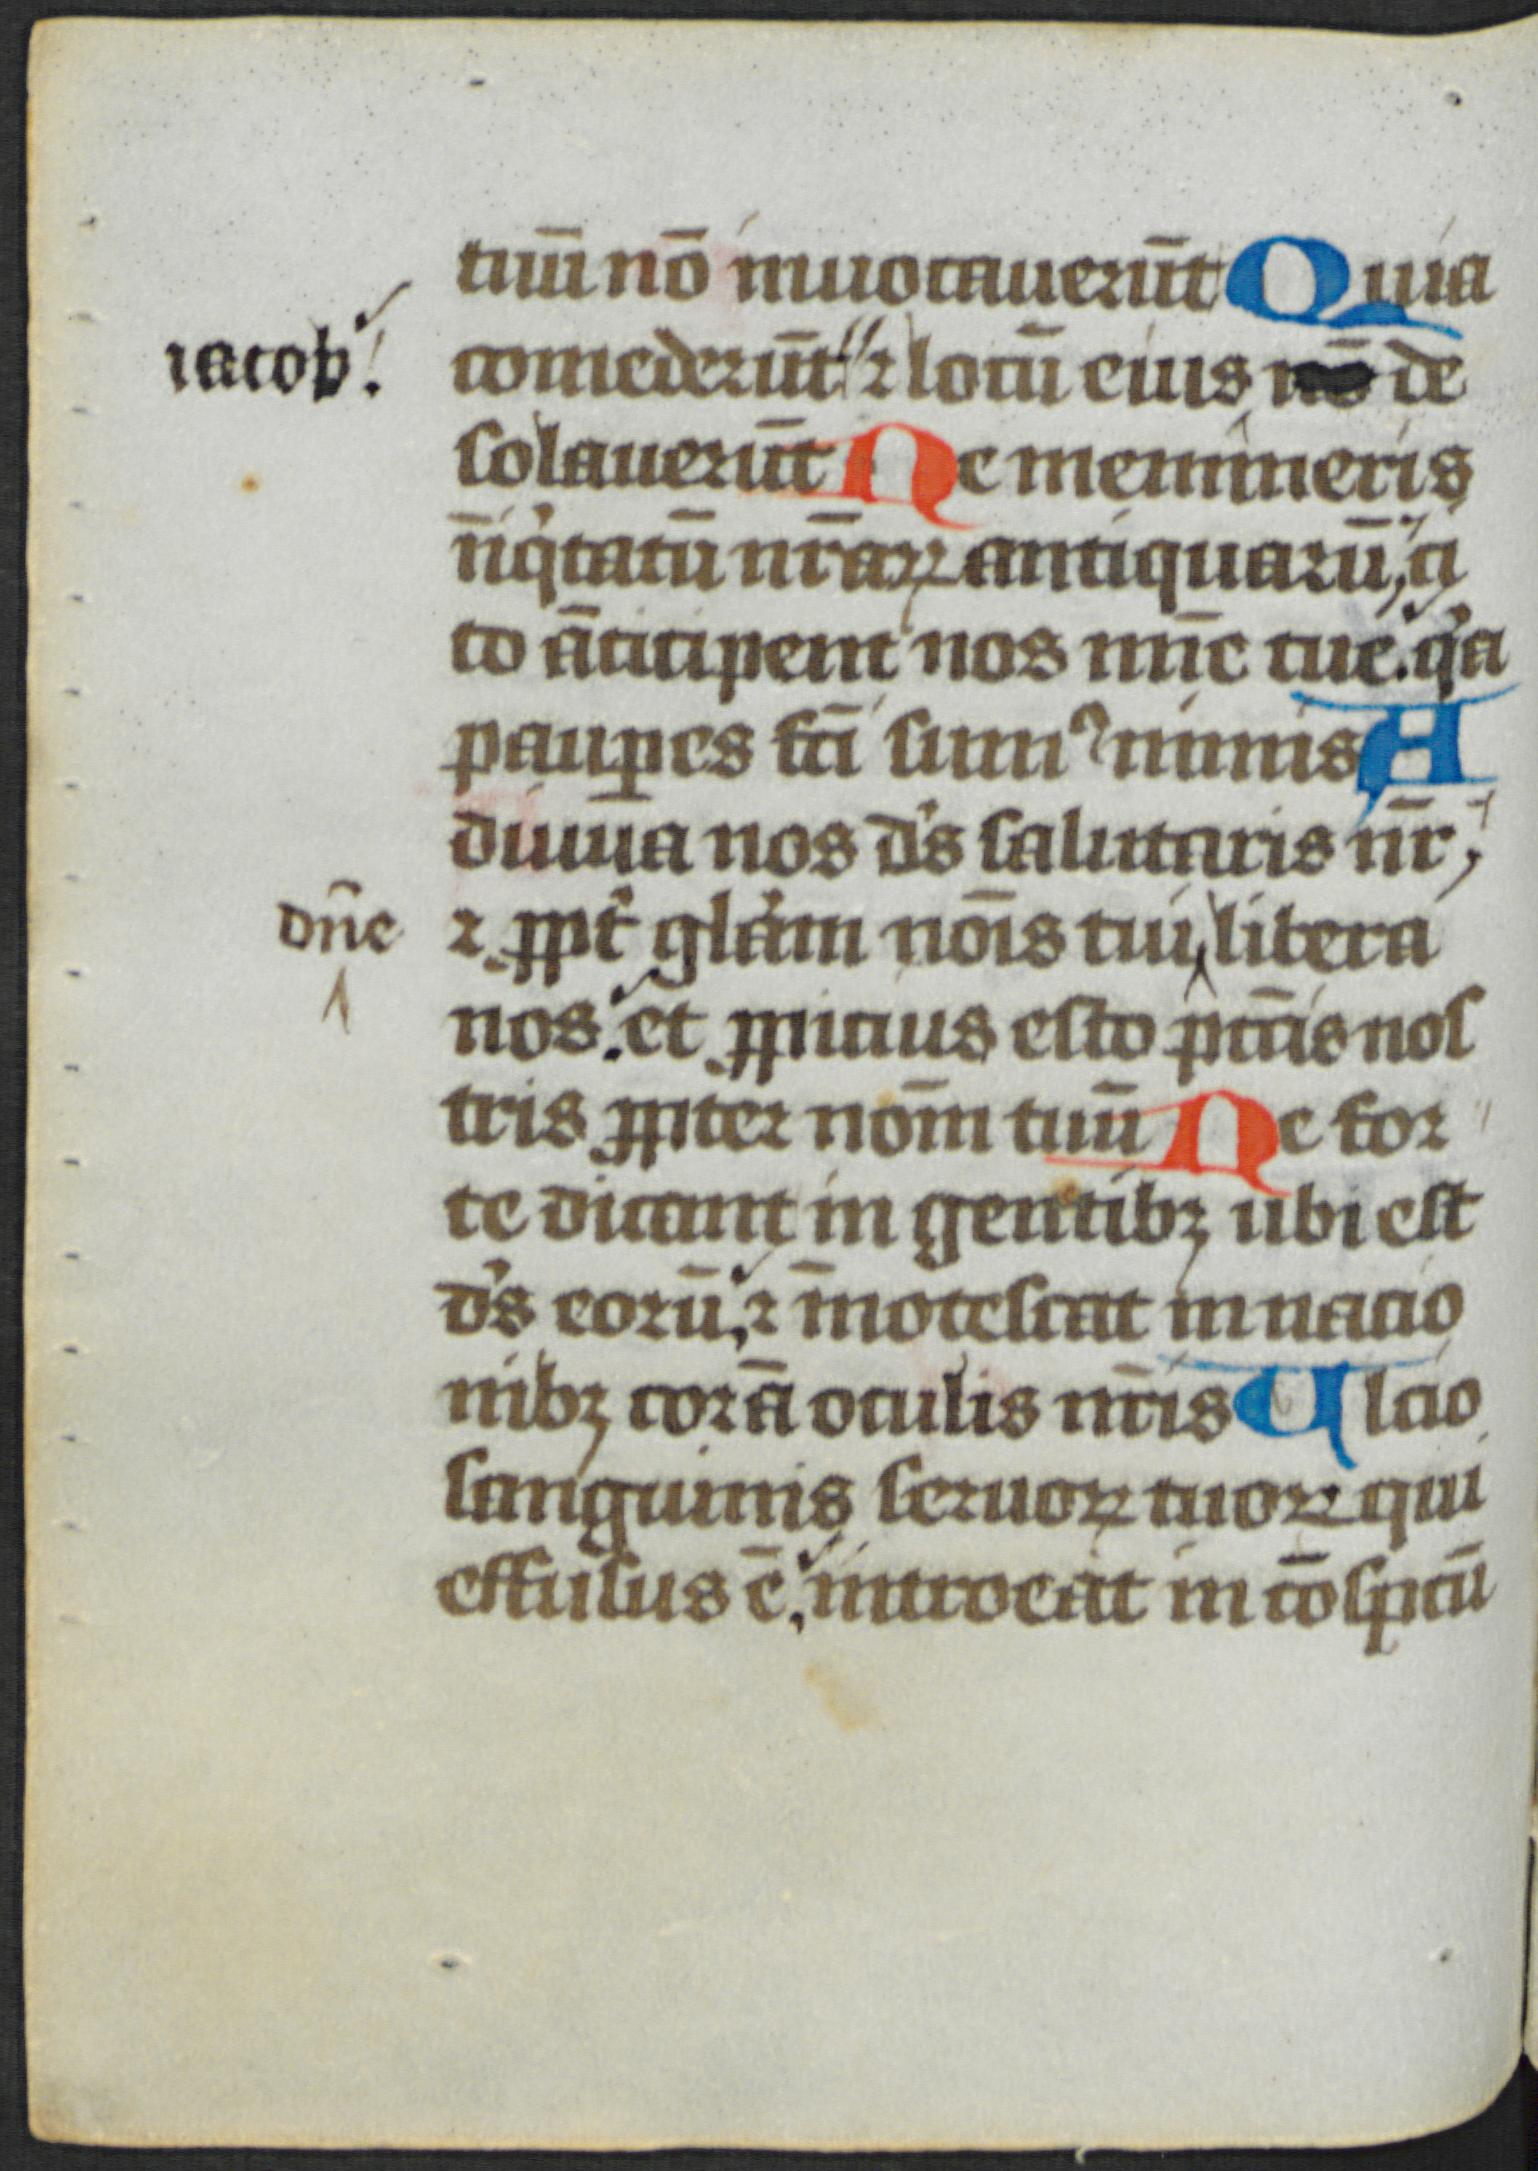 tuū nō inuocauerūt Quia
iacob.
comederūt ⁊ locū eius de
solauerūt Ne memineris
īiqͥtatū nr̄aꝝ antiquarū, ci
to ā̄ticipent nos mīe tue. qͥa
pauꝑes fc̄i sumꝰ nimis A
diuua nos dˢs salutaris nr̄,
dn̄e
⁊ ꝓpt̓ glāam nōis tui libera
nos. et ꝓpicius esto pc̄cīs nos
tris ꝓpter nōm tuū Ne for
te dicant in gentibꝫ ubi est
dˢs eorū, ⁊ īnotescat in nacio
nibꝫ corā oculis nr̄is Ulcio
sanguinis seruoꝝ tuoꝝ qui
effusus ē, introeat in cōspcū